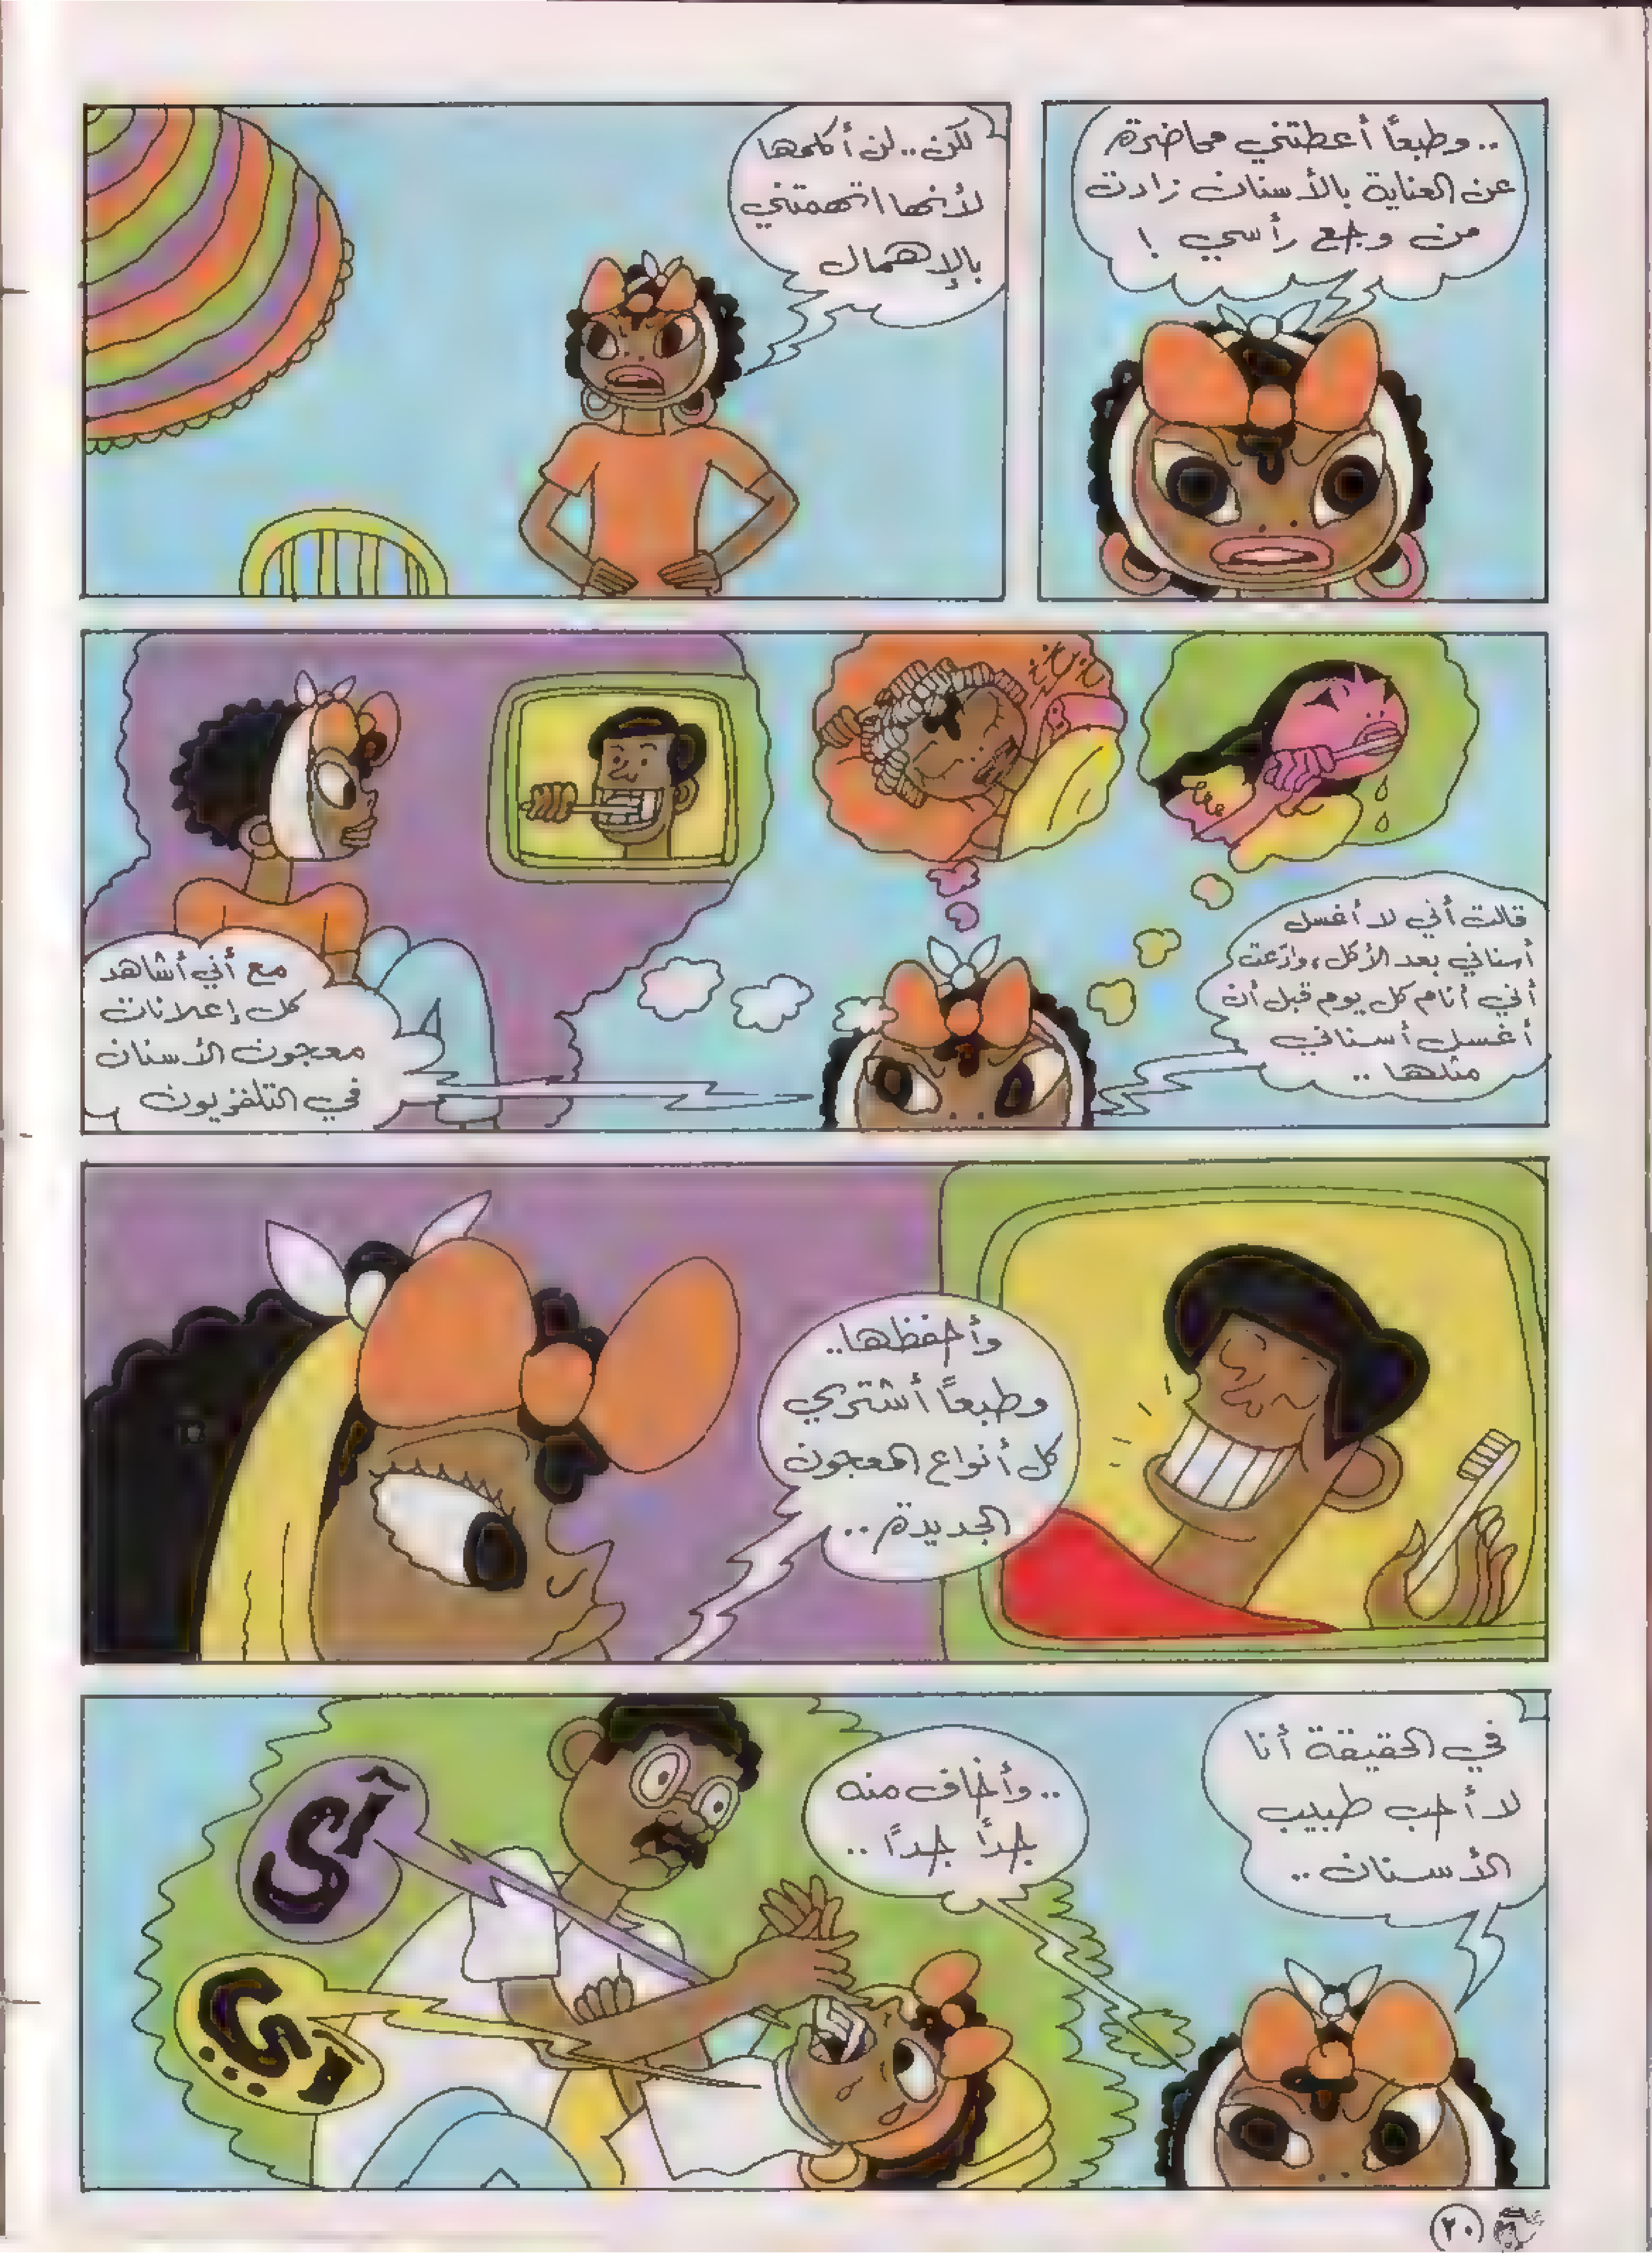 ..وطبعًا أعطتني محاضرة
عن العناية بالأسنان زادت
من وجع رأسي !
لكن..لن أكلمها
لأنها اتهمتني
بالإهمال
قالت أني لا أغسل
أسناني بعد الأكل، وادّعت
أني أنام كل يوم قبل أن
أغسل أسناني
مثلها ..
خ خ خ خ
مع أني أشاهد
كل إعلانات
معجون الأسنان
في التلفزيون
وأحفظها..
وطبعًا أشتري
كل أنواع المعجون
الجديدة ..
في الحقيقة أنا
لا أحب طبيب
الأسنان ..
..وأخاف منه
جدًا جدًا ..
آي
٢٠